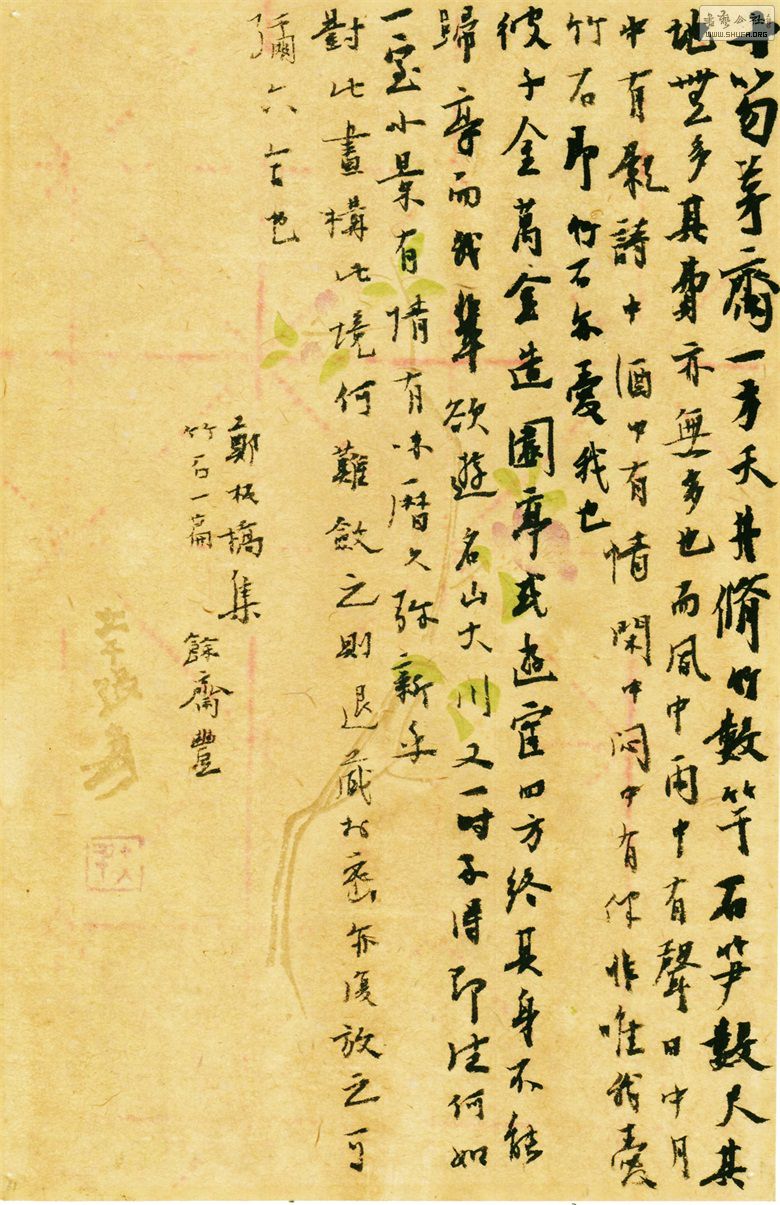 十笏茅齋一方天井脩竹數竿石笋數尺其
地無多其費亦無多也而風中雨中有聲日中月
中有影詩中酒中有情閑中悶中有伴非唯我愛
竹石即竹石亦愛我也
彼千金萬金造園亭或遊宦四方終其身不能
歸享而我輩欲遊名山大川又一時不得即往何如
一室小景有情有味曆久弥新乎
對此畫構此境何難斂之則退藏於密亦復放之可
彌六合也
鄭板橋集
竹石一篇
餘齋豐
書藝公社
WWW.SHUFA.ORG